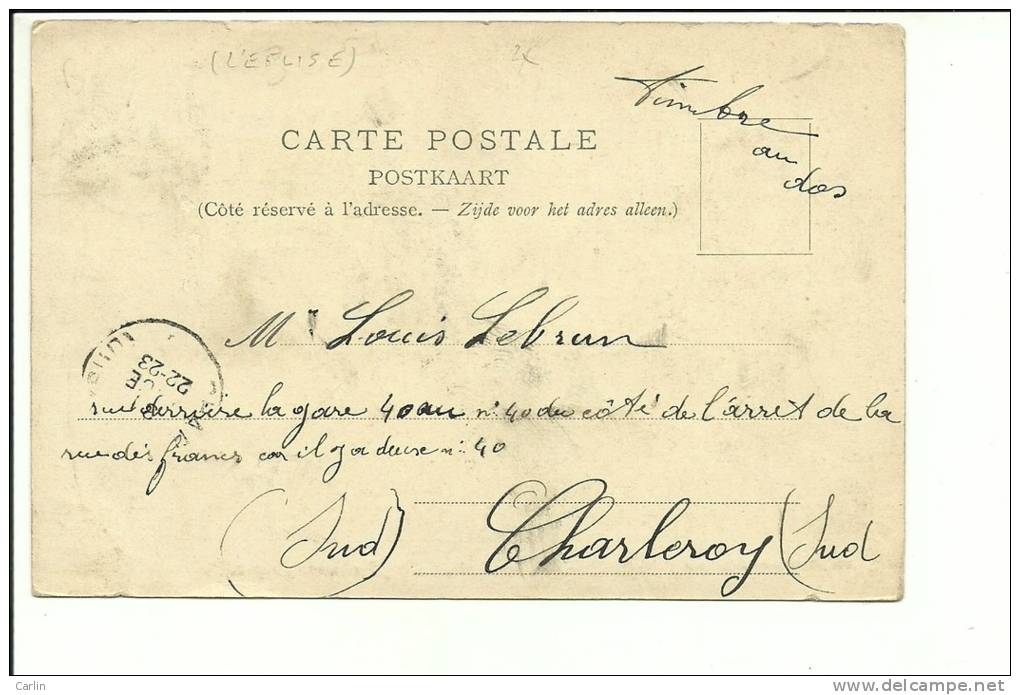 (L'EGLISE)
Timbre
au
dos
CARTE POSTALE
POSTKAART
(Côté réservé à l'adresse. — Zijde voor het adres alleen.)
Mr Louis Lebrun
22-23
rue derrière la gare 40 au n: 40 du côté de l'arrêt de la
rue des francs car il y a deux n: 40
(Sud) Charleroy (Sud
Carlin
http://www.delcampe.net